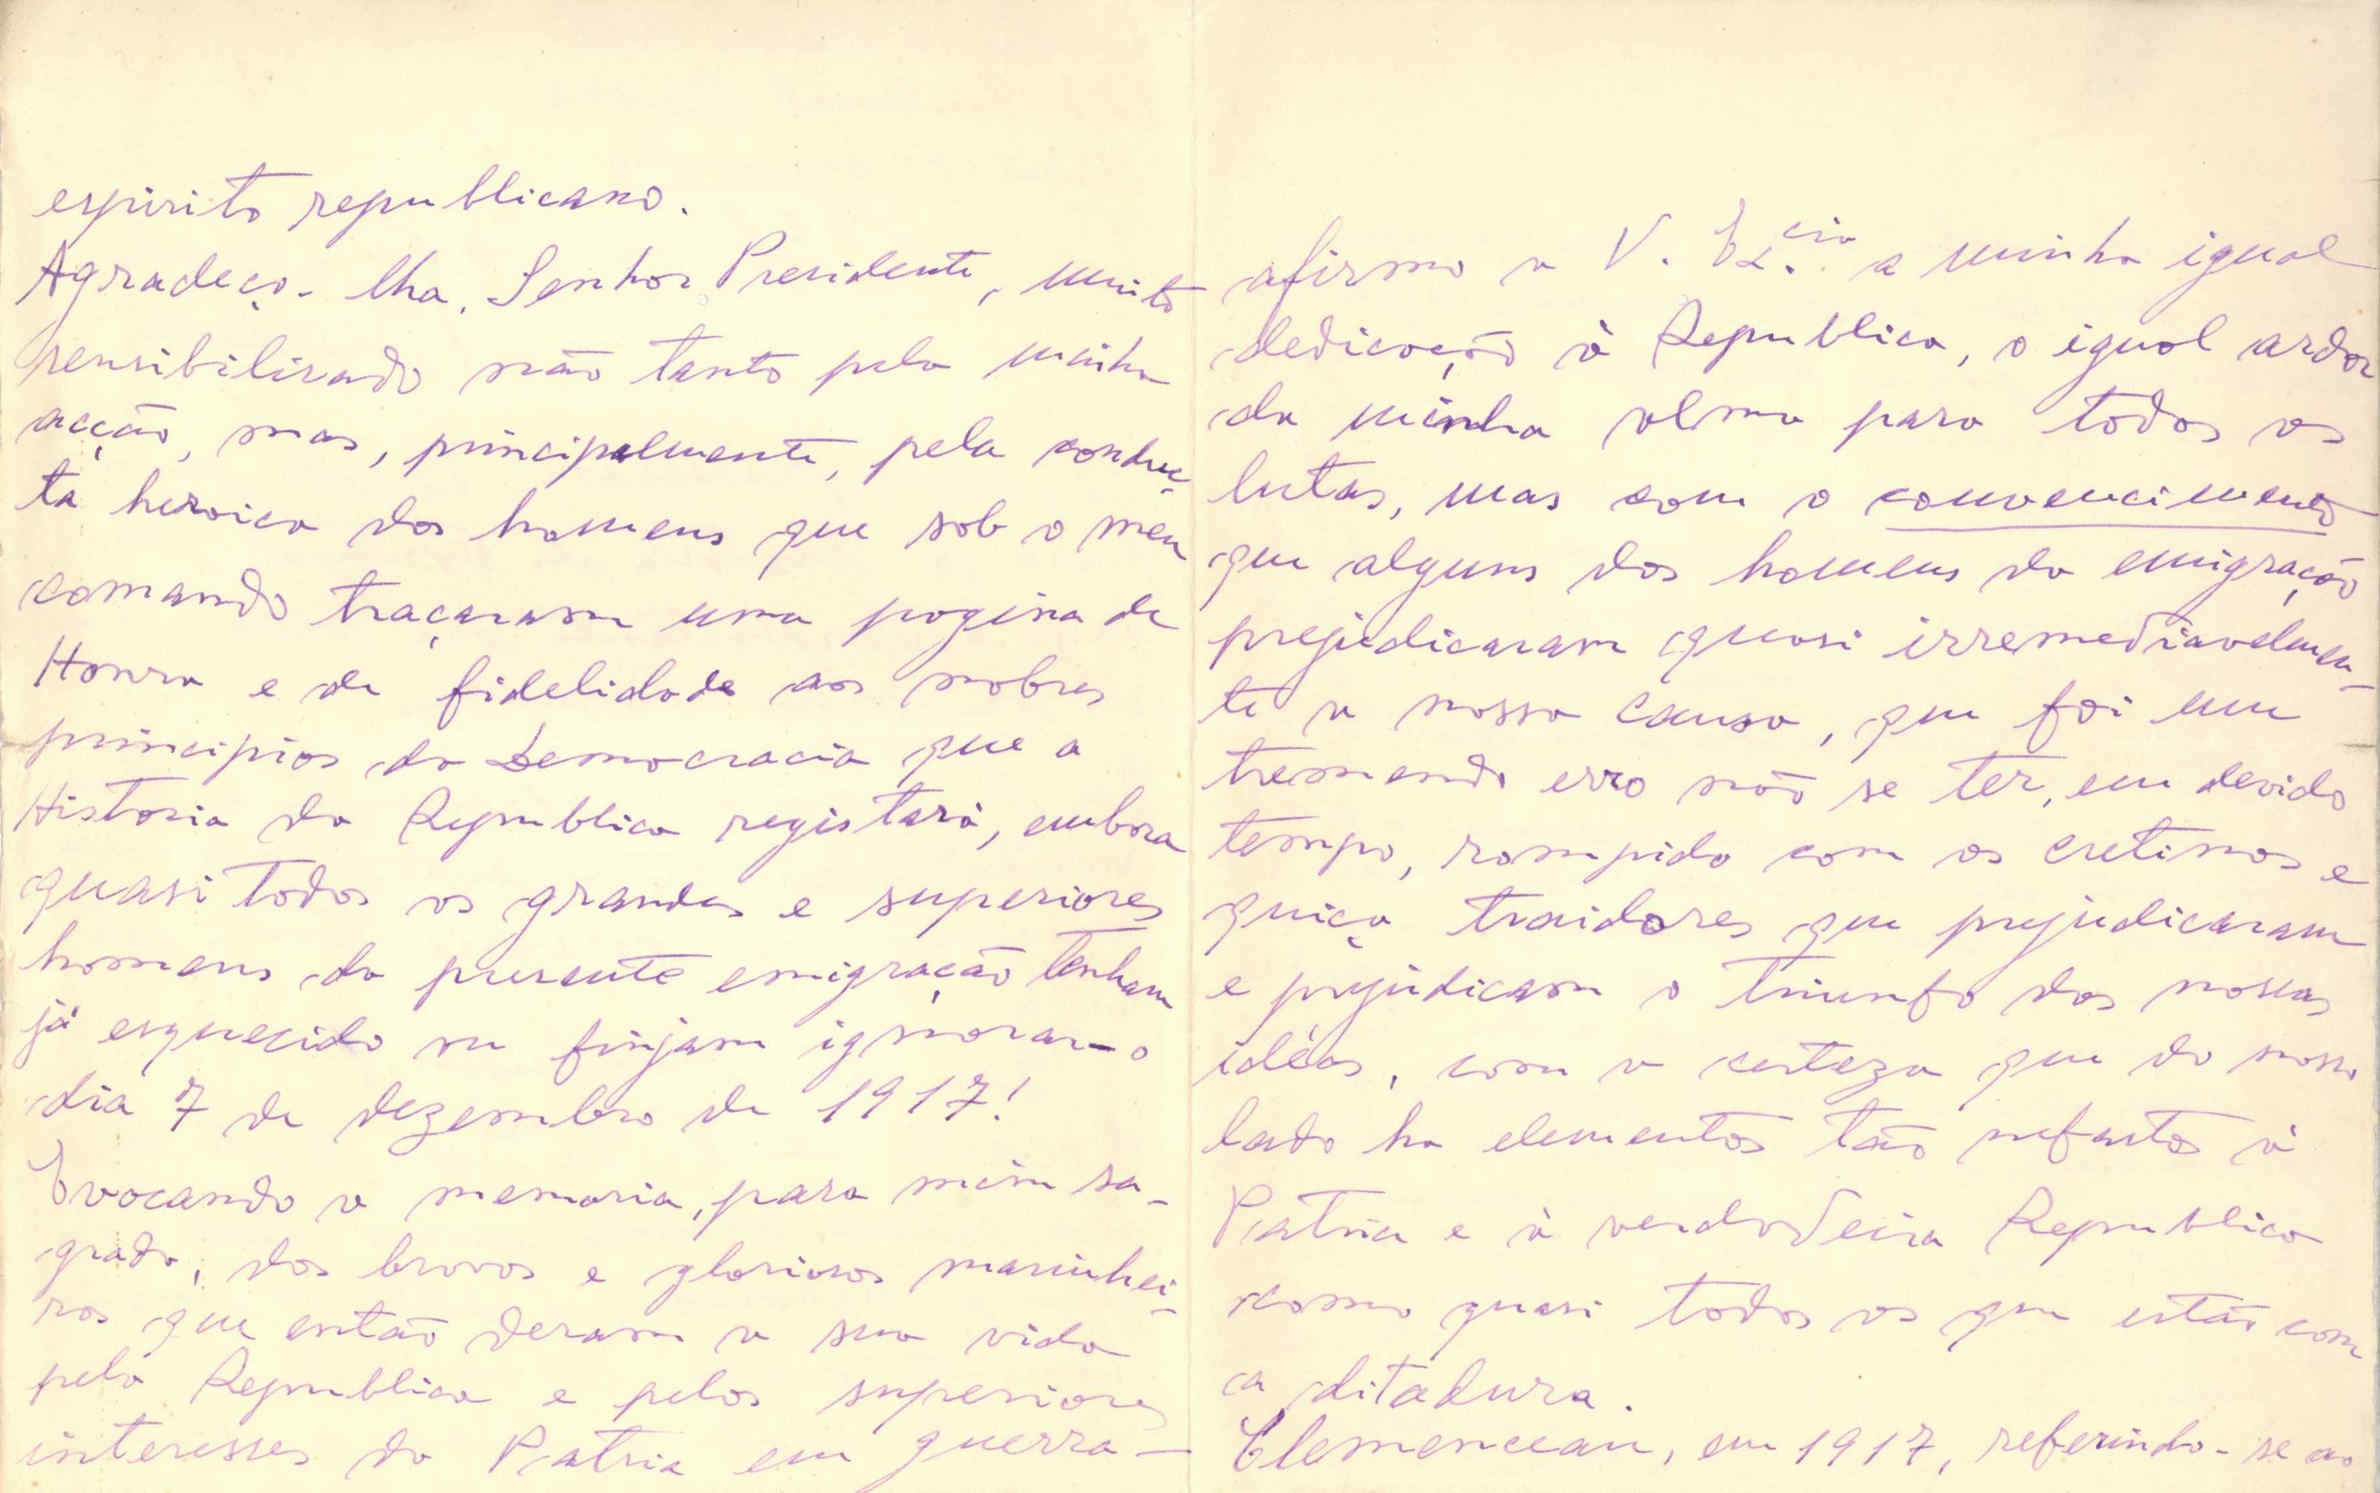 espirito republicano.
Agradeço-lha, Senhor Presidente, muito
sensibilisado não tanto pela minha
acção, mas, principalmente, pela conduc-
ta heroica dos homens que sob o meu
comando traçaram uma pagina de
Honra e de fidelidade aos nobres
principios da Democracia que a
Historia da Republica registará, embora
quasi todos os grandes e superiores
homens da presente emigração tenham
já esquecido ou finjam ignorar-o
dia 7 de dezembro de 1917!
Evocando a memoria, para mim sa-
grada, dos bravos e gloriosos marinhei-
ros que então deram a sua vida
pela Republica e pelos superiores
interesses da Patria em guerra -
afirmo a V. Ex.cia a minha igual
dedicação à Republica, o igual ardor
da minha alma para todas as
lutas, mas com o convencimento
que alguns dos homens da emigração
prejudicaram quasi irremediavelmen-
te a nossa causa, que foi um
tremendo erro não se ter, em devido
tempo, rompido com os cretinos e
quiça traidores que prejudicaram
e prejudicam o triunfo das nossas
idéas, com a certeza que do nosso
lado ha elementos tão nefastos à
Patria e à verdadeira Republica
como quasi todos os que estão com
a ditadura.
Clemenceau, em 1917, referindo-se ao